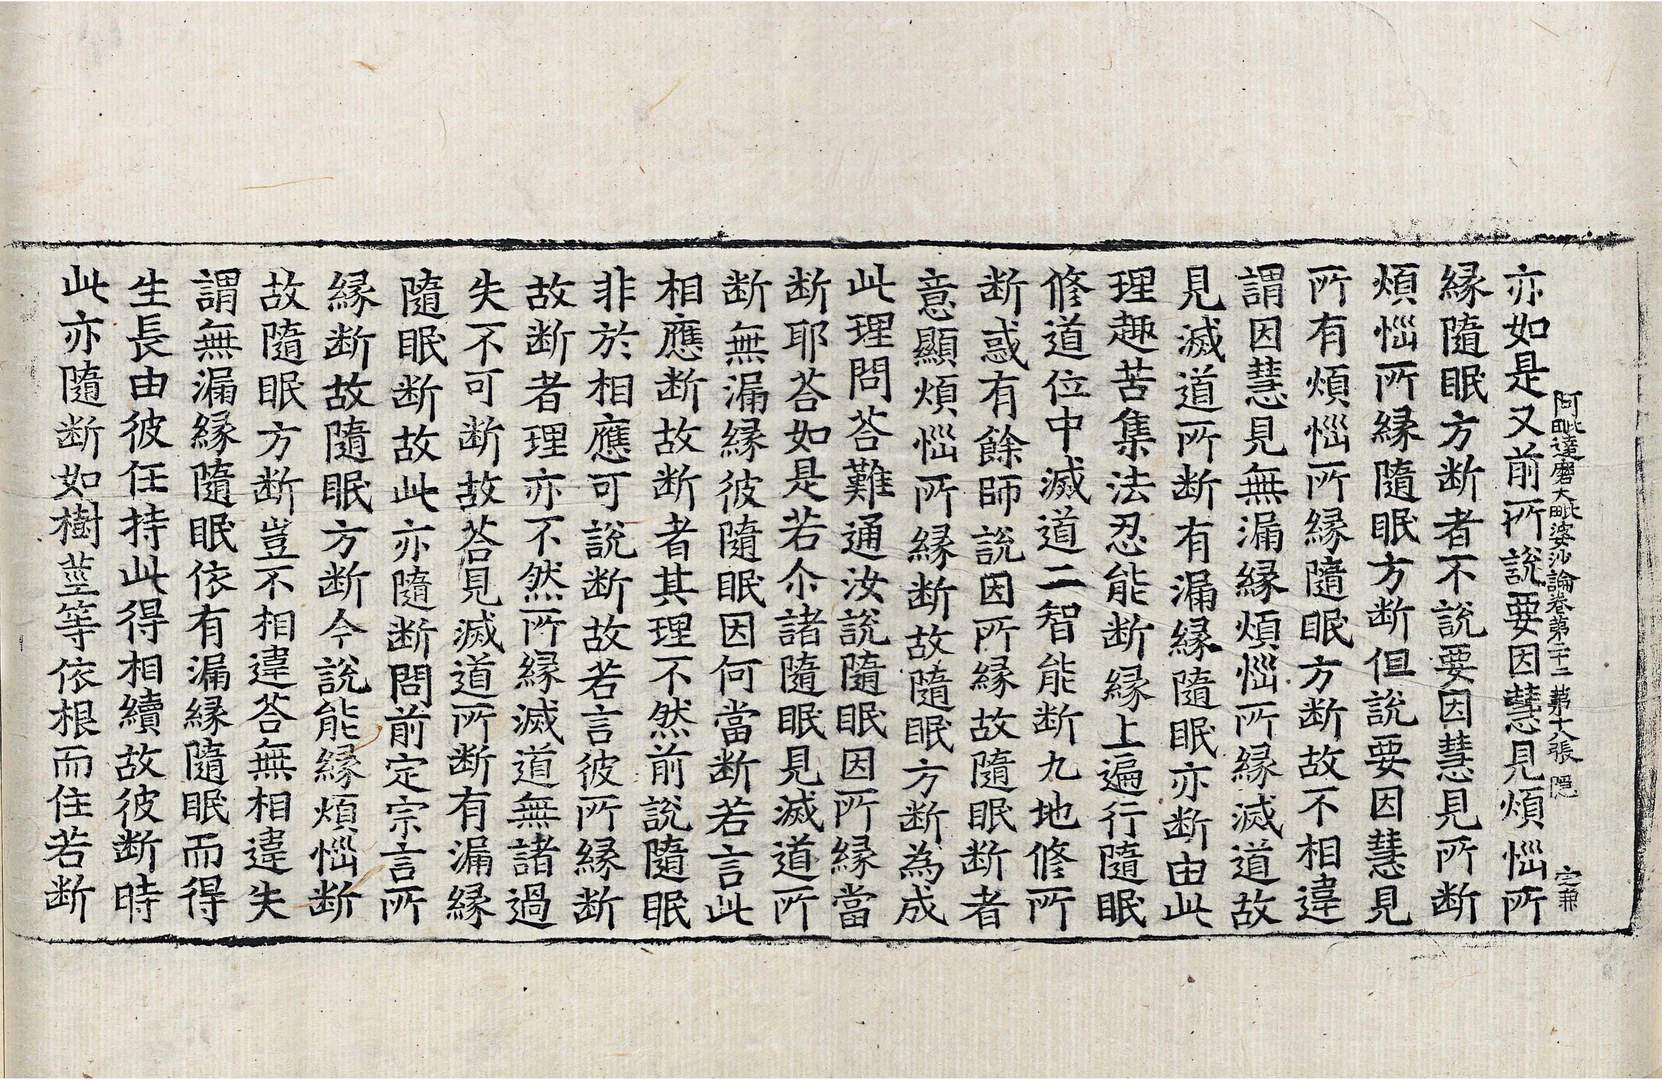 阿毗達磨大毗婆沙論卷第二十二 第十六張 隱
亦如是又前所說要因慧見煩惱所
緣隨眠方断者不說要因慧見所断
煩惱所緣隨眠方断但說要因慧見
所有煩惱所緣隨眠方断故不相違
謂因慧見無漏緣煩惱所緣滅道故
見滅道所断有漏緣隨眠亦断由此
理趣苦集法忍能断緣上遍行隨眠
修道位中滅道二智能断九地修所
断惑有餘師說因所緣故隨眠断者
意顯煩惱所緣断故隨眠方断為成
此理問荅難通汝說隨眠因所緣當
断耶荅如是若尒諸隨眠見滅道所
断無漏緣彼隨眠因何當断若言此
相應断故断者其理不然前說隨眠
非於相應可說断故若言彼所緣断
故断者理亦不然所緣滅道無諸過
失不可断故荅見滅道所断有漏緣
隨眠断故此亦隨断問前定宗言所
緣断故隨眠方断今說能緣煩惱断
故隨眠方断豈不相違荅無相違失
謂無漏緣隨眠依有漏緣隨眠而得
生長由彼任持此得相續故彼断時
此亦隨断如樹莖等依根而住若断